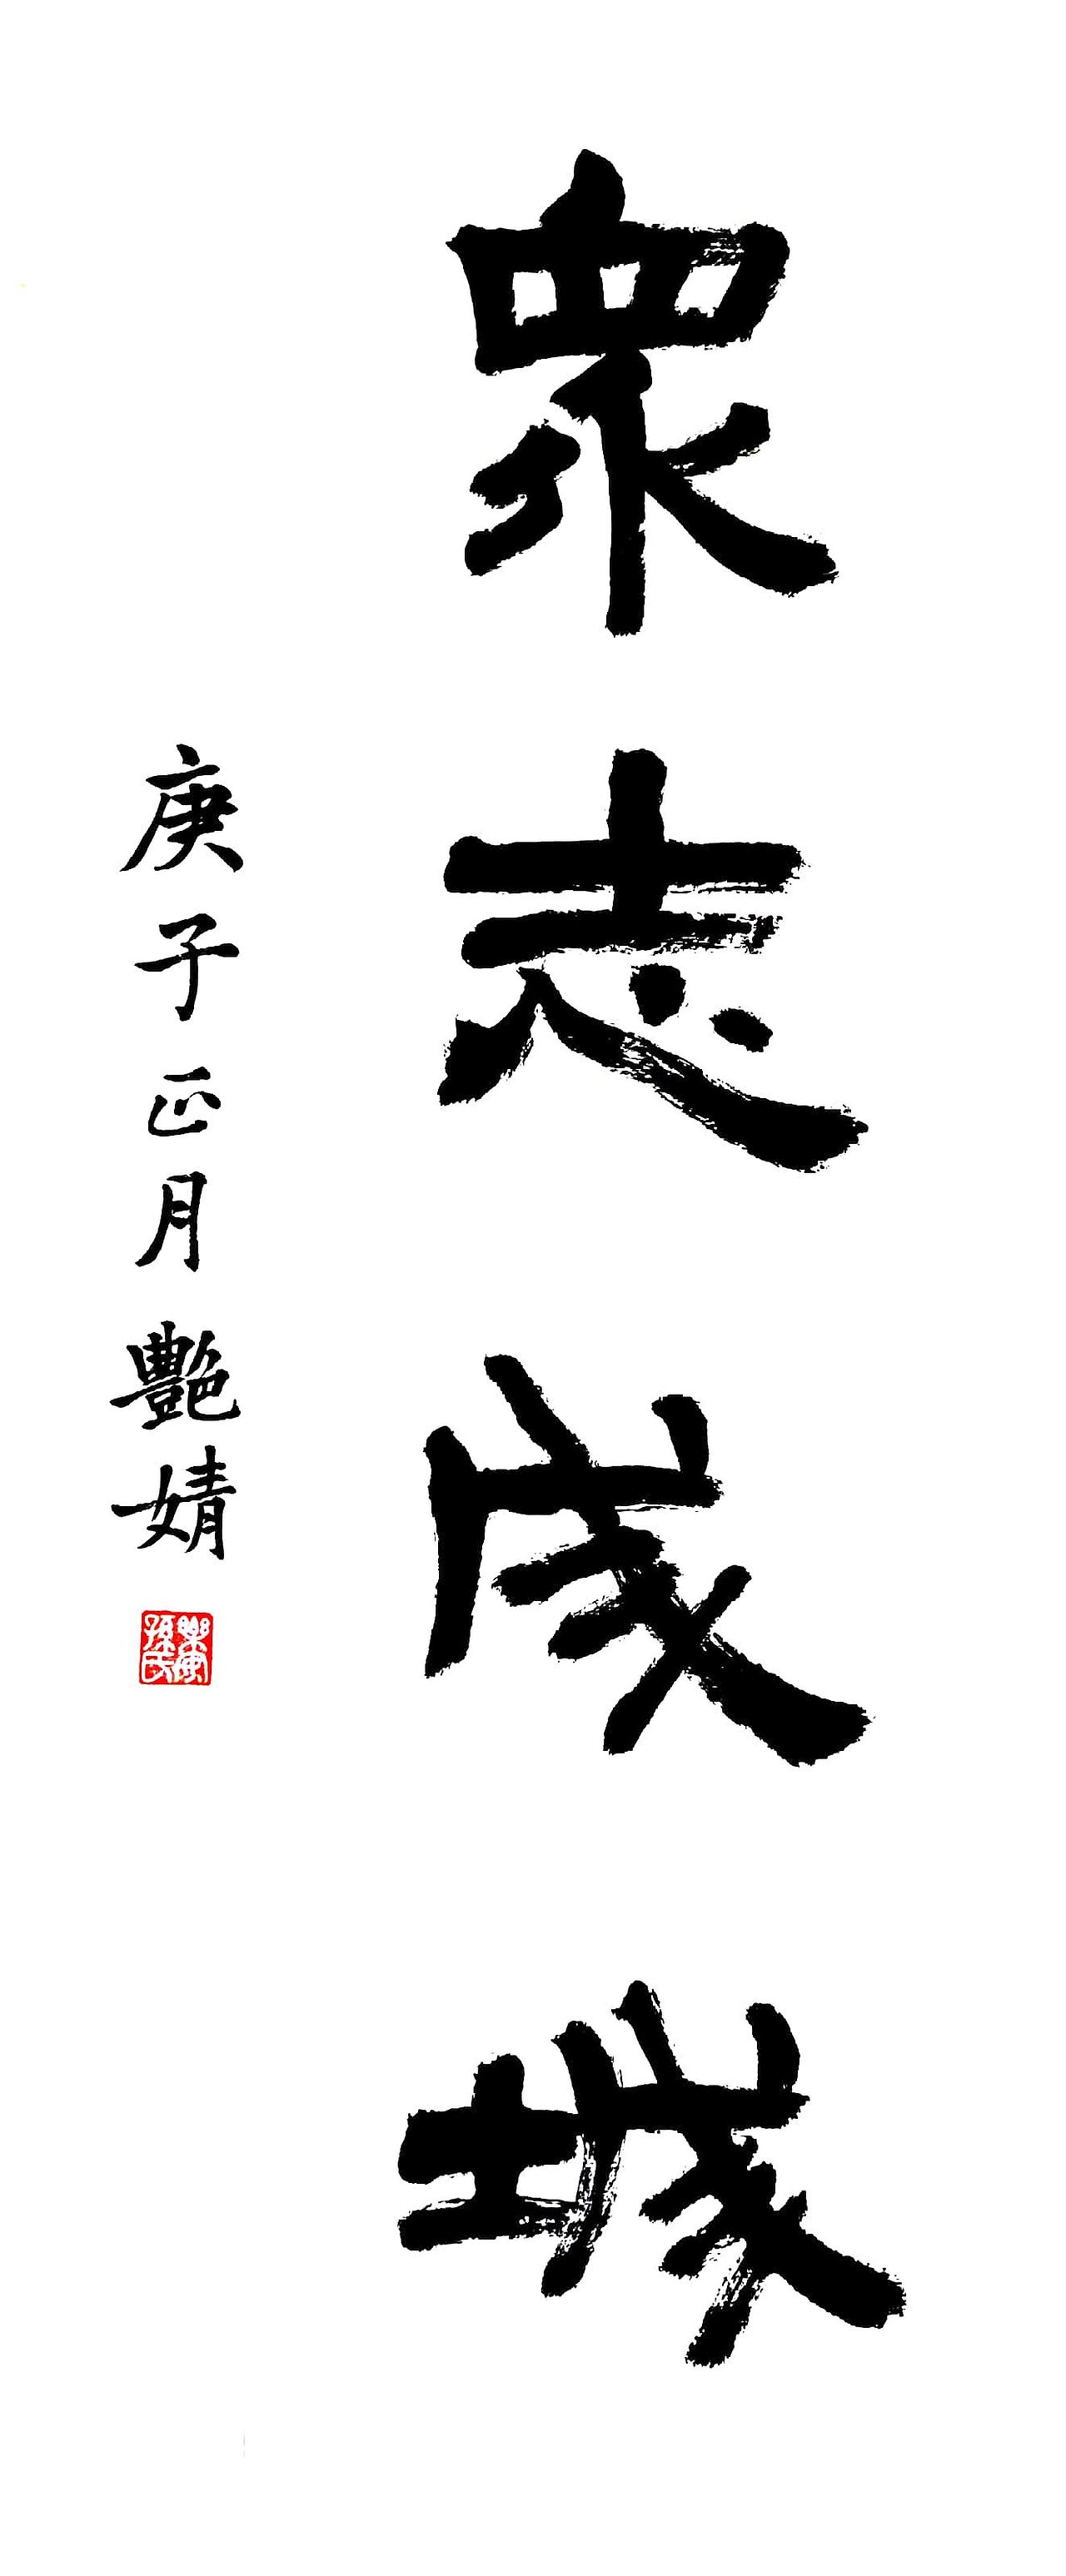 眾志成城
庚子正月艷婧